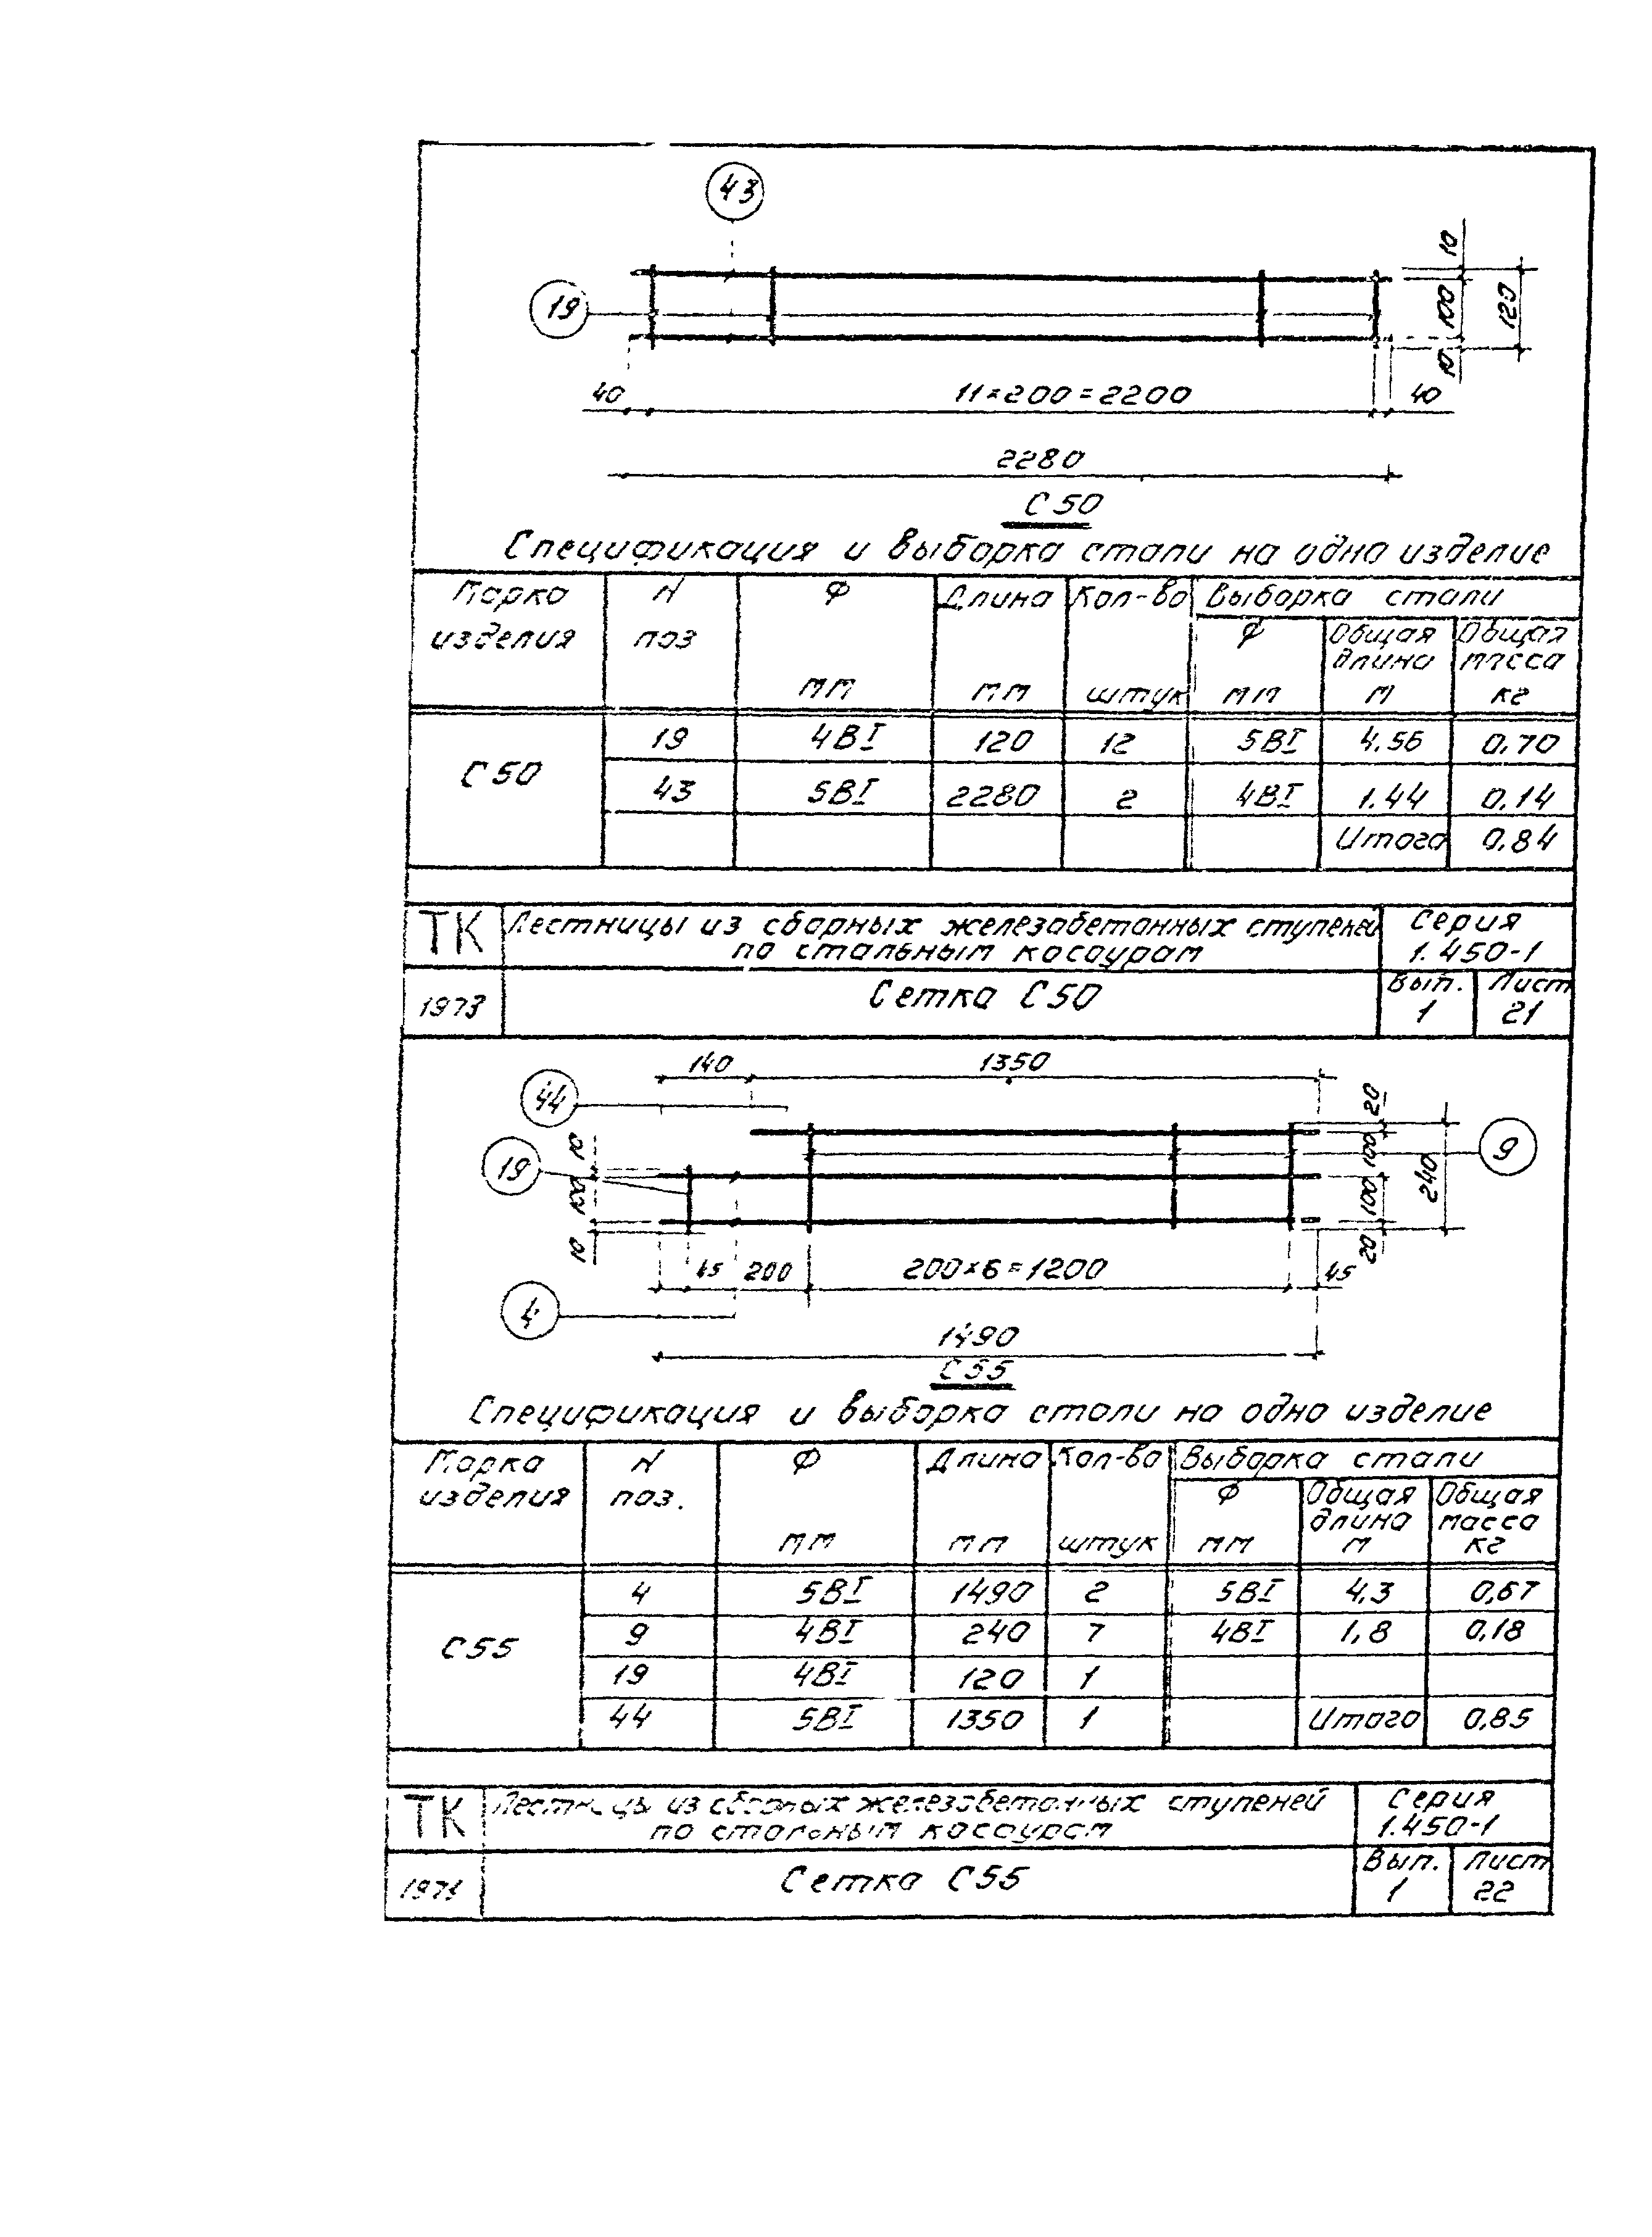 43
19
10
100
10
120
40
11×200=2200
40
2280
С50
Спецификация и выборка стали на одно изделие
Марка изделия
N поз
Ф мм
Длина мм
Кол-во штук
Выборка стали
Ф мм
Общая длина м
Общая масса кг
С50
19 4ВI 120 12 5ВI 4.56 0,70
43 5ВI 2280 2 4ВI 1.44 0,14
Итого 0,84
ТК
Лестницы из сборных железобетонных ступеней
по стальным косоурам
Серия
1.450-1
1973
Сетка С50
Вып.
1
Лист
21
140
1350
44
19
10
100
10
20
100
100
20
240
9
45
200
200×6=1200
45
4
1490
С55
Спецификация и выборка стали на одно изделие
Марка изделия
N поз.
Ф мм
Длина мм
Кол-во штук
Выборка стали
Ф мм
Общая длина м
Общая масса кг
С55
4 5ВI 1490 2 5ВI 4,3 0,67
9 4ВI 240 7 4ВI 1,8 0,18
19 4ВI 120 1
44 5ВI 1350 1 Итого 0,85
ТК
Лестницы из сборных железобетонных ступеней
по стальным косоурам
Серия
1.450-1
Сетка С55
Вып.
1
Лист
22